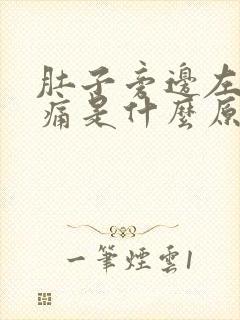 肚子旁邊左
痛是什麼原
一筆煙雲1